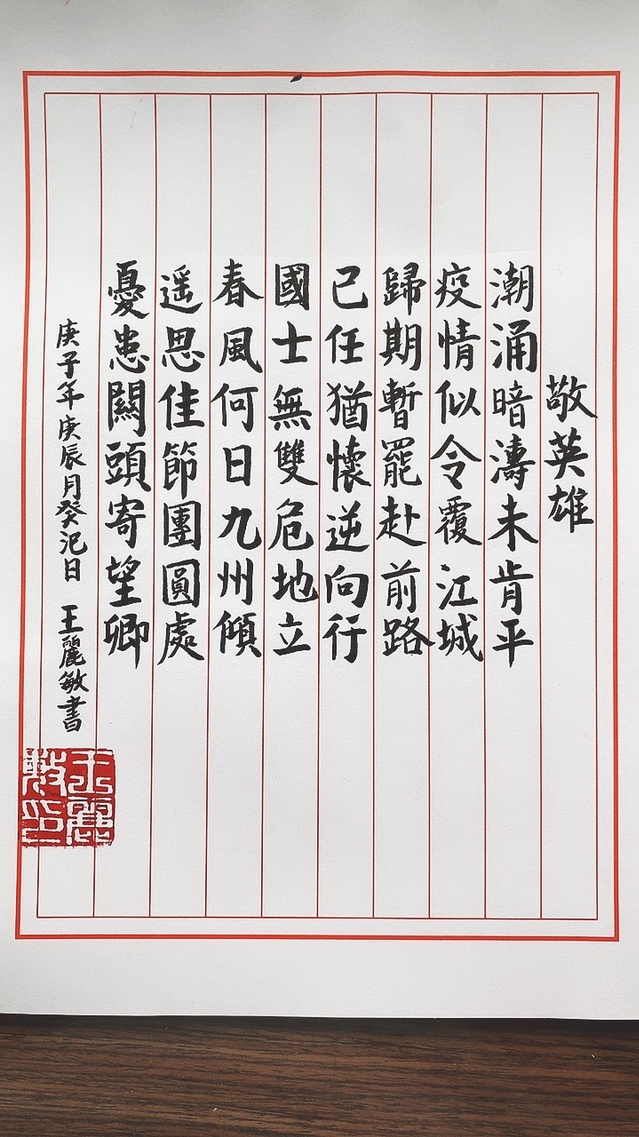 敬英雄
潮涌暗濤未肯平
疫情似令覆江城
歸期暫罷赴前路
己任猶懷逆向行
國士無雙危地立
春風何日九州傾
遥思佳節團圓處
憂患關頭寄望卿
庚子年庚辰月癸汜日 王麗敏書
王麗
敏印